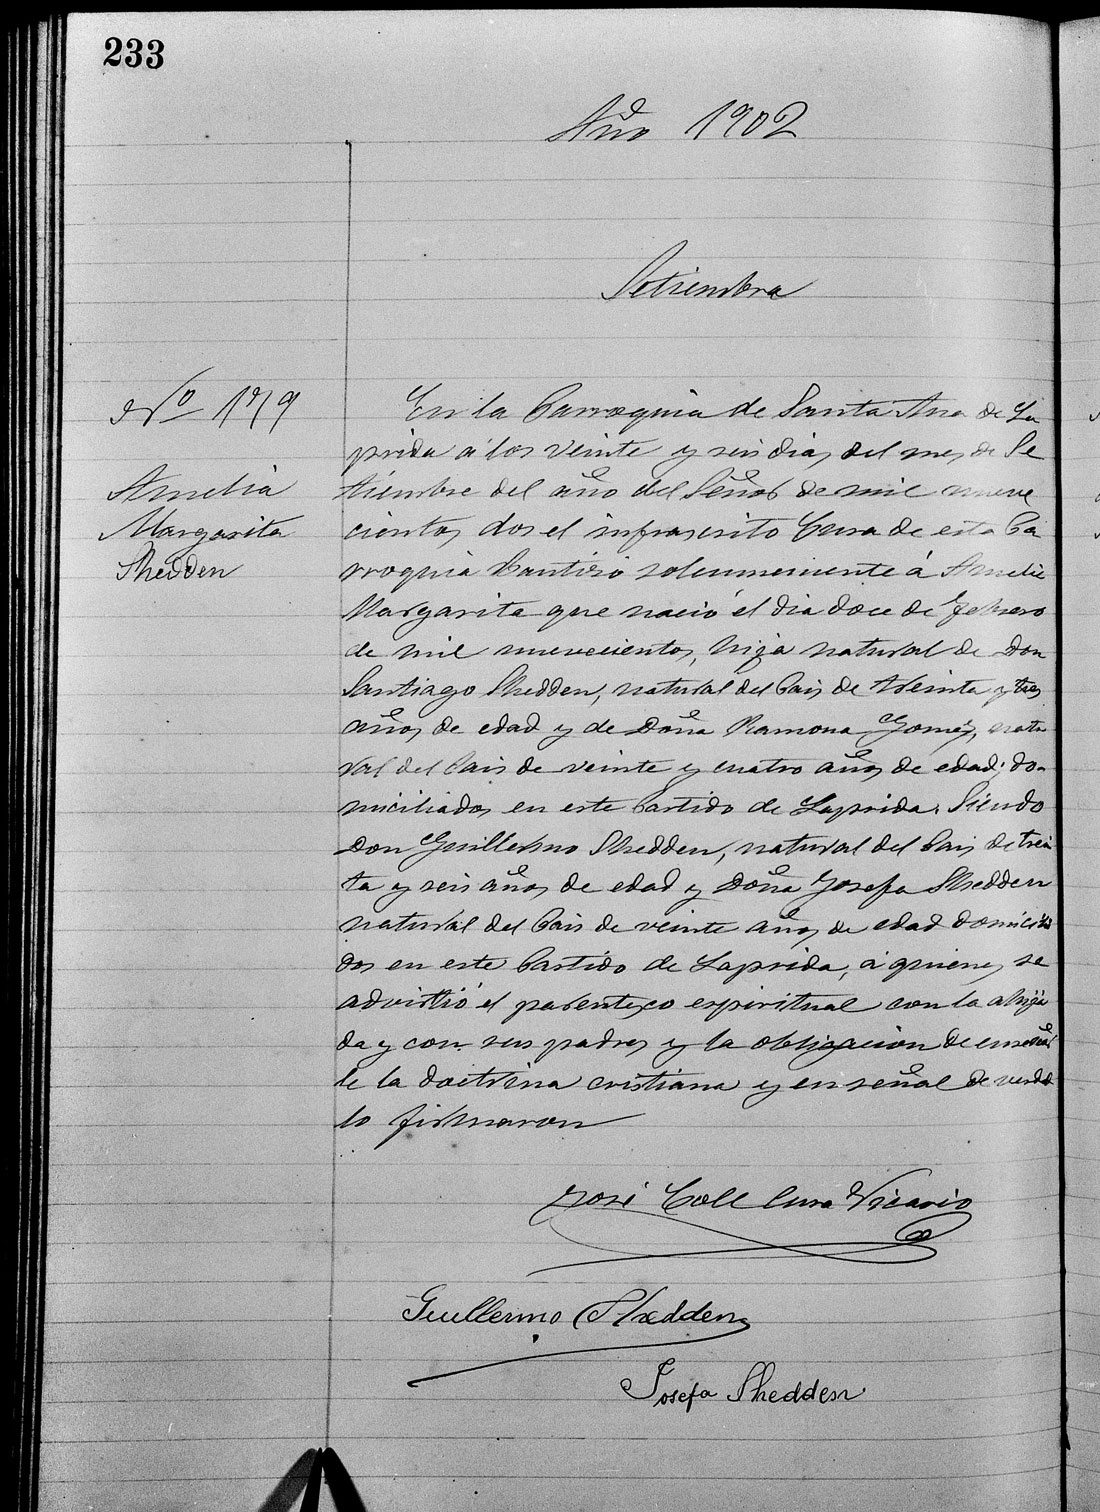 233
Año 1902
Setiembre
Nº 179
Amelia
Margarita
Shedden
En la Parroquia de Santa Ana de La
prida a los veinte y seis dias del mes de Se
tiembre del año del Señor de mil nueve
cientos dos el infrascrito Cura de esta Pa
rroquia bautizó solemnemente á Amelia
Margarita que nació el dia doce de Febrero
de mil nuevecientos, hija natural de Don
Santiago Shedden, natural del Pais de treinta y tres
años de edad y de Doña Ramona Gomez, natu
ral del Pais de veinte y cuatro años de edad; do-
miciliados en este Partido de Laprida. Siendo
Don Guillermo Shedden, natural del Pais de trein
ta y seis años de edad y Doña Josefa Shedden
natural del Pais de veinte años de edad domicilia
dos en este Partido de Laprida, á quienes se
advirtió el parentezco espiritual con la ahija
da y con sus padres y la obligacion de enseñar
le la doctrina cristiana y en señal de verdad
lo firmaron
José Coll Cura Vicario
Guillermo Shedden
Josefa Shedden